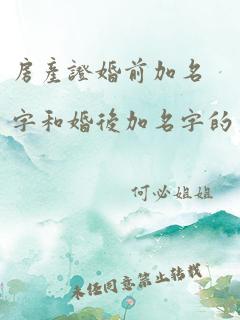 房產證婚前加名
字和婚後加名字的
何必姐姐
未经同意禁止转载